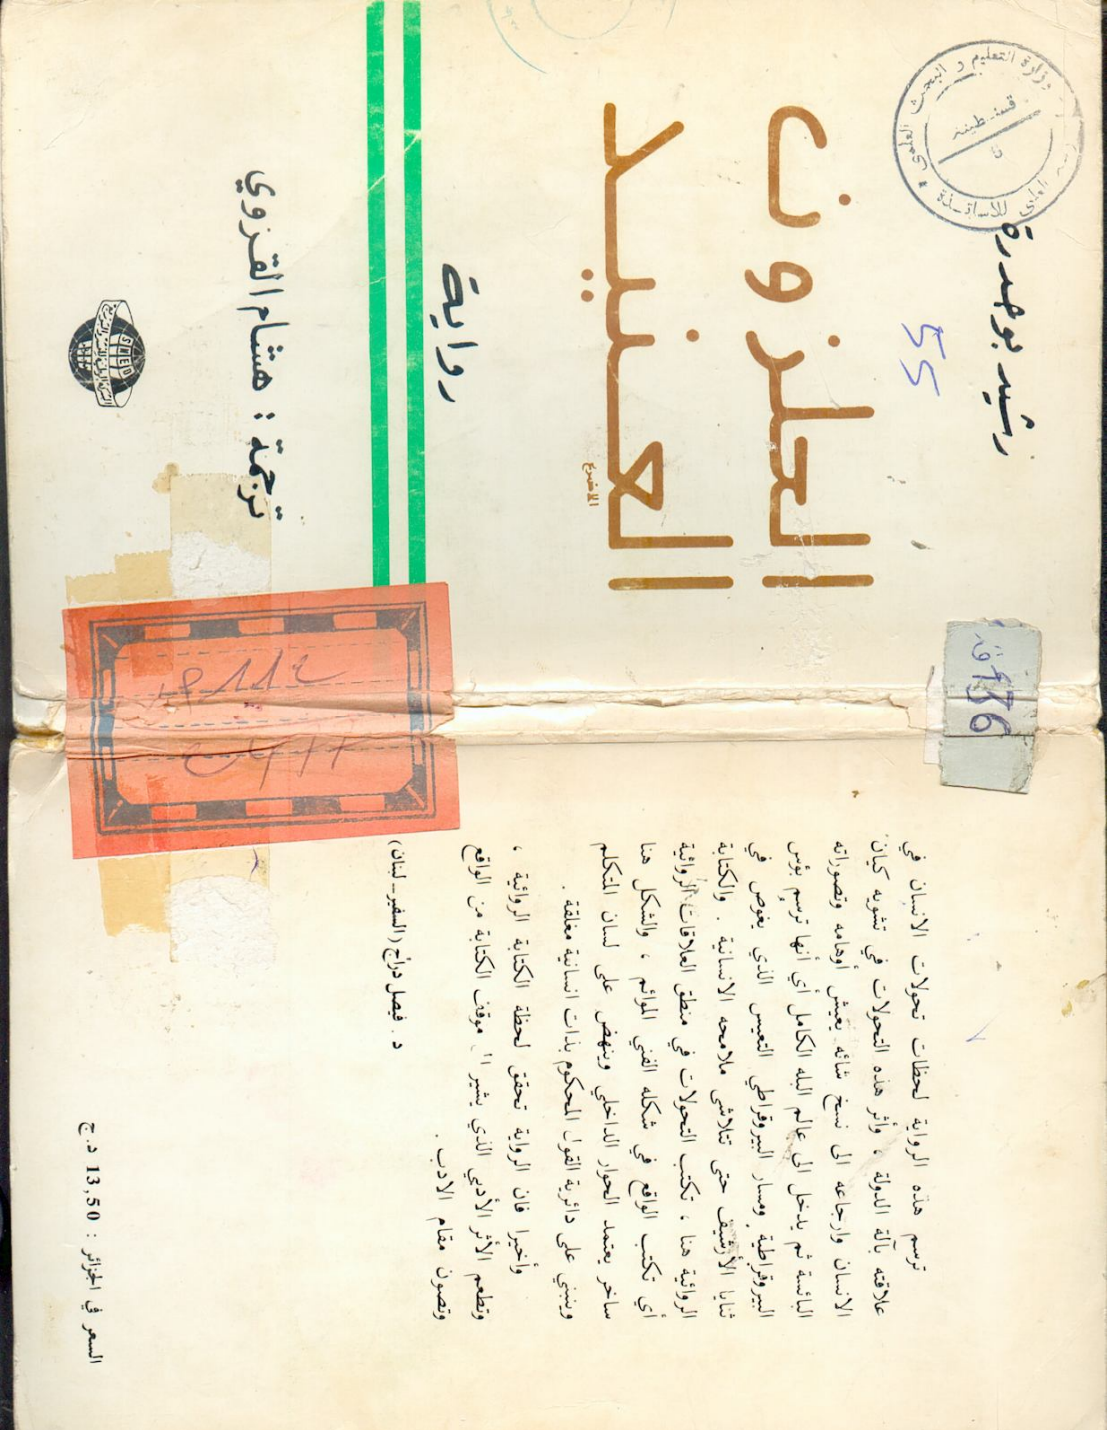 رشيد بوجدرة
55
الحلزون
العنيد
الاخرع
رواية
ترجمة : هشام القزوي
SNED
وزارة التعليم و البحث العلمي
قسنطينة
136
ترسم هذه الرواية لحظات تحولات الانسان في
علاقته بآلة الدولة ، وأثر هذه التحولات في تشويه كيان
الانسان وارجاعه الى نسخ شائه يعيش أوهامه وتصوراته
البائسة ثم يدخل الى عالم البله الكامل أي أنها ترسم بؤس
البيروقراطية ومسار البيروقراطي التعيس الذي يغوص في
ثنايا الأرشيف حتى تتلاشى ملامحه الانسانية . والكتابة
الروائية هنا ، تكتب التحولات في منطق العلاقات الروائية
أي تكتب الواقع في شكله الفني الموائم ، والشكل هنا
ساخر يعتمد الحوار الداخلي وينهض على لسان المتكلم
وينبني على دائرية القول المحكوم بذات انسانية مغلقة .
وأخيرا فان الرواية تحقق لحظة الكتابة الروائية ،
وتطعم الأثر الأدبي الذي يشير موقف الكتابة من الواقع
وتصون مقام الادب .
د . فيصل درّاج (السفير ــ لبنان)
السعر في الجزائر : 13,50 د.ج